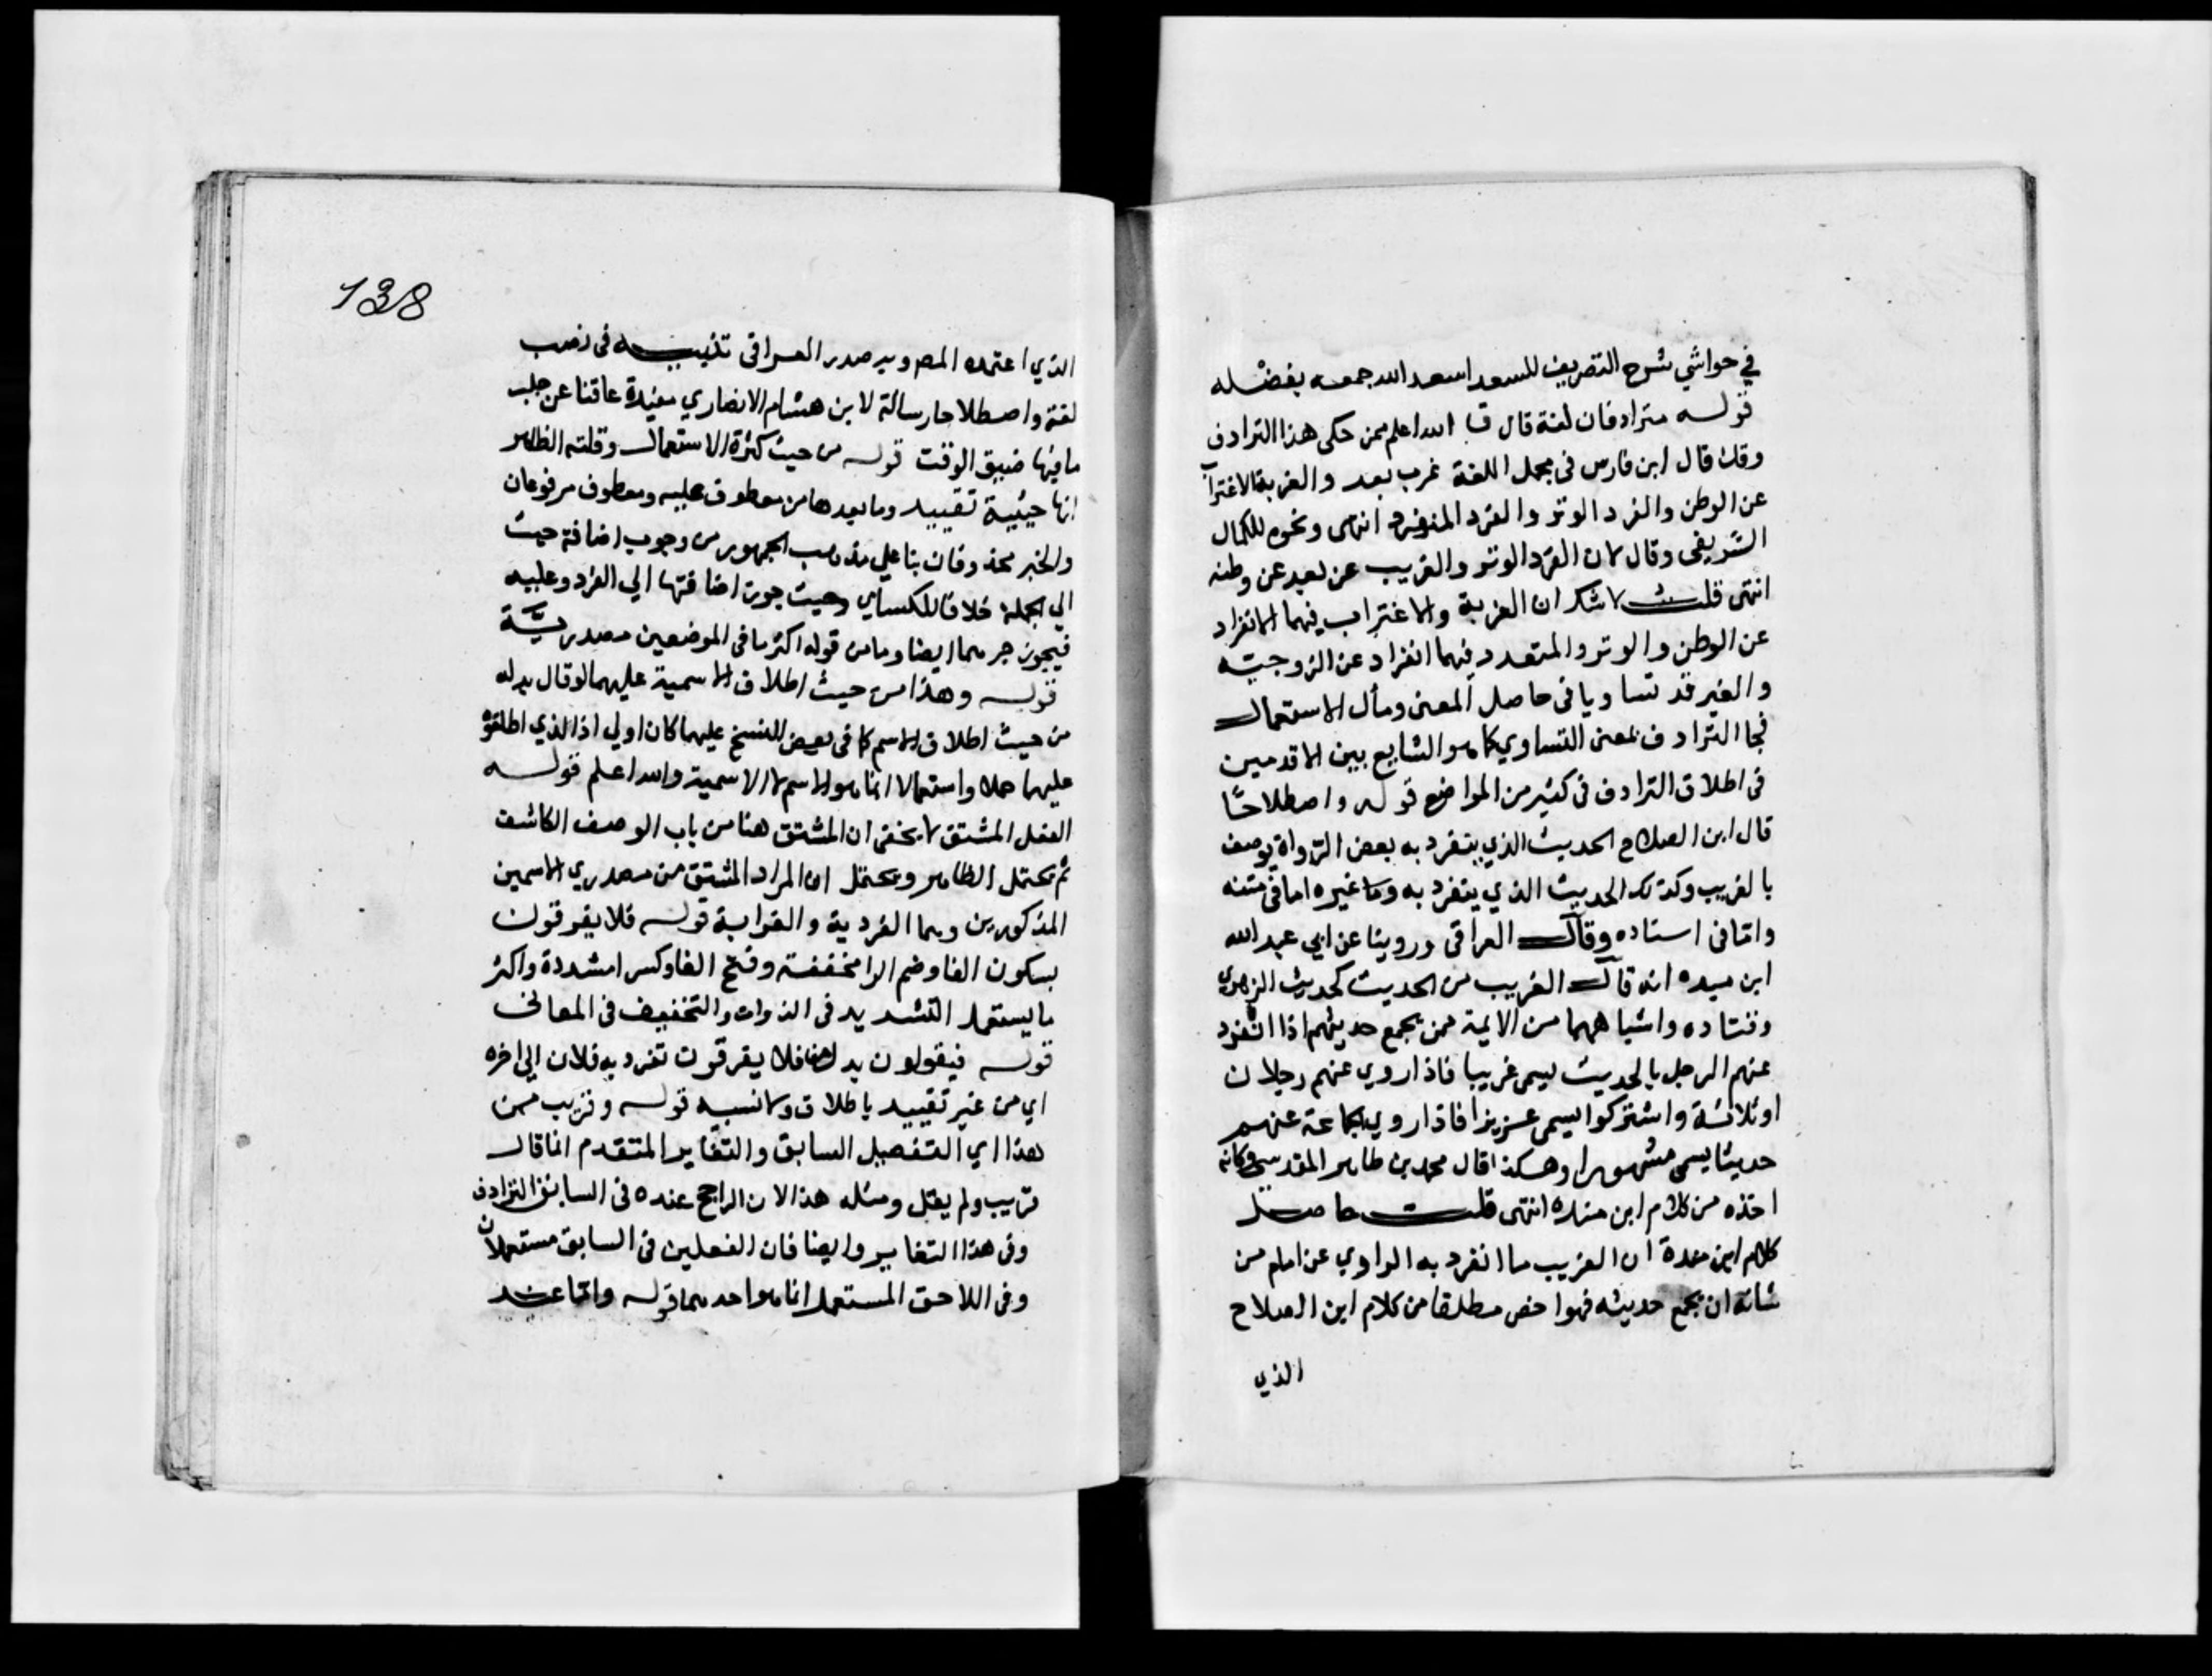 في حواشي شرح التصريف للسعد اسعد الله جمعه بفضله
قوله مترادفان لغة قال ق الله اعلم بمن حكى هذا الترادف
وقد قال ابن فارس في مجمل اللغة غرب بعد والغربة الاغتراب
عن الوطن والفرد الوتر والفرد المنفرد انتهى ونحوه للكمال
الشريفي وقال لان الفرد الوتر والغريب عن بعد عن وطنه
انتهى قلت لا شك ان الغربة والاغتراب فيهما الانفراد
عن الوطن والوتر والمتعدد فيهما انفراد عن الزوجية
والغير قد تساويا في حاصل المعنى ومآل الاستعمال
فجا الترادف بمعنى التساوي كما هو الشايع بين الاقدمين
في اطلاق الترادف في كثير من المواضع قوله واصطلاحًا
قال ابن الصلاح الحديث الذي يتفرد به بعض الرواة يوصف
بالغريب وكذلك الحديث الذي ينفرد به وما غيره اما في متنه
واما في اسناده وقال العراقي وروينا عن ابي عبد الله
ابن ميده انه قال الغريب من الحديث كحديث الزهري
وقتاده واشباههما من الايمة ممن يجمع حديثهم اذا انفرد
عنهم الرجل بالحديث يسمى غريبا فاذا روي عنهم رجلان
او ثلاثة واشتركوا يسمى عزيزا فاذا روي الجماعة عنهم
حديثا يسمى مشهورا وهكذا قال محمد بن طاهر المقدسي وكانه
اخذه من كلام ابن منده انتهى قلت حاصل
كلام ابن منده ان الغريب ما انفرد به الراوي عن امام من
شانه ان يجمع حديثه فهو اخص مطلقا من كلام ابن الصلاح
الذي
138
الذي اعتمده المص وبه صدر العراقي تنبيه في نصب
لغة واصطلاحا رسالة لابن هشام الانصاري مفيدة عاقنا عن جلب
ما فيها ضيق الوقت قوله من حيث كثرة الاستعمال وقلته الظاهر
انها حيثية تقييد وما بعدها من معطوف عليه ومعطوف مرفوعان
والخبر محذوفان بنا علي مذهب الجمهور من وجوب اضافة حيث
الي الجملة خلافا للكساي وحيث جوز اضافتها الي الفرد وعليه
فيجوز جرهما ايضا وما من قوله اكثر ما في الموضعين مصدريَّة
قوله وهذا من حيث اطلاق الاسمية عليهما لو قال بدله
من حيث اطلاق الاسم كما في بعض النسخ عليهما كان اولي اذ الذي اطلقوه
عليهما حملا واستعمالا انما هو الاسم لا الاسمية والله اعلم قوله
الفعل المشتق لا يخفى ان المشتق هنا من باب الوصف الكاشف
ثم يحتمل الظاهر ويحتمل ان المراد المشتق من مصدري الاسمين
المذكورين وهما الفردية والغرابة قوله فلا يفرقون
بسكون الفا وضم الرا مخففة وفتح الفا وكسرا مشددة واكثر
ما يستعمل التشديد في الذوات والتخفيف في المعاني
قوله فيقولون بدلها فلا يفرقون تفرد به فلان الي اخره
اي من غير تقييد باطلاق ولا نسبه قوله وقريب من
هذا اي التفصيل السابق والتغاير المتقدم انما قال
قريب ولم يقل ومثله هذا لان الراجح عنده في السابق الترادف
وفي هذا التغاير وايضا فان الفعلين في السابق مستعملان
وفي اللاحق المستعمل انما هو احدهما قوله وانما عند